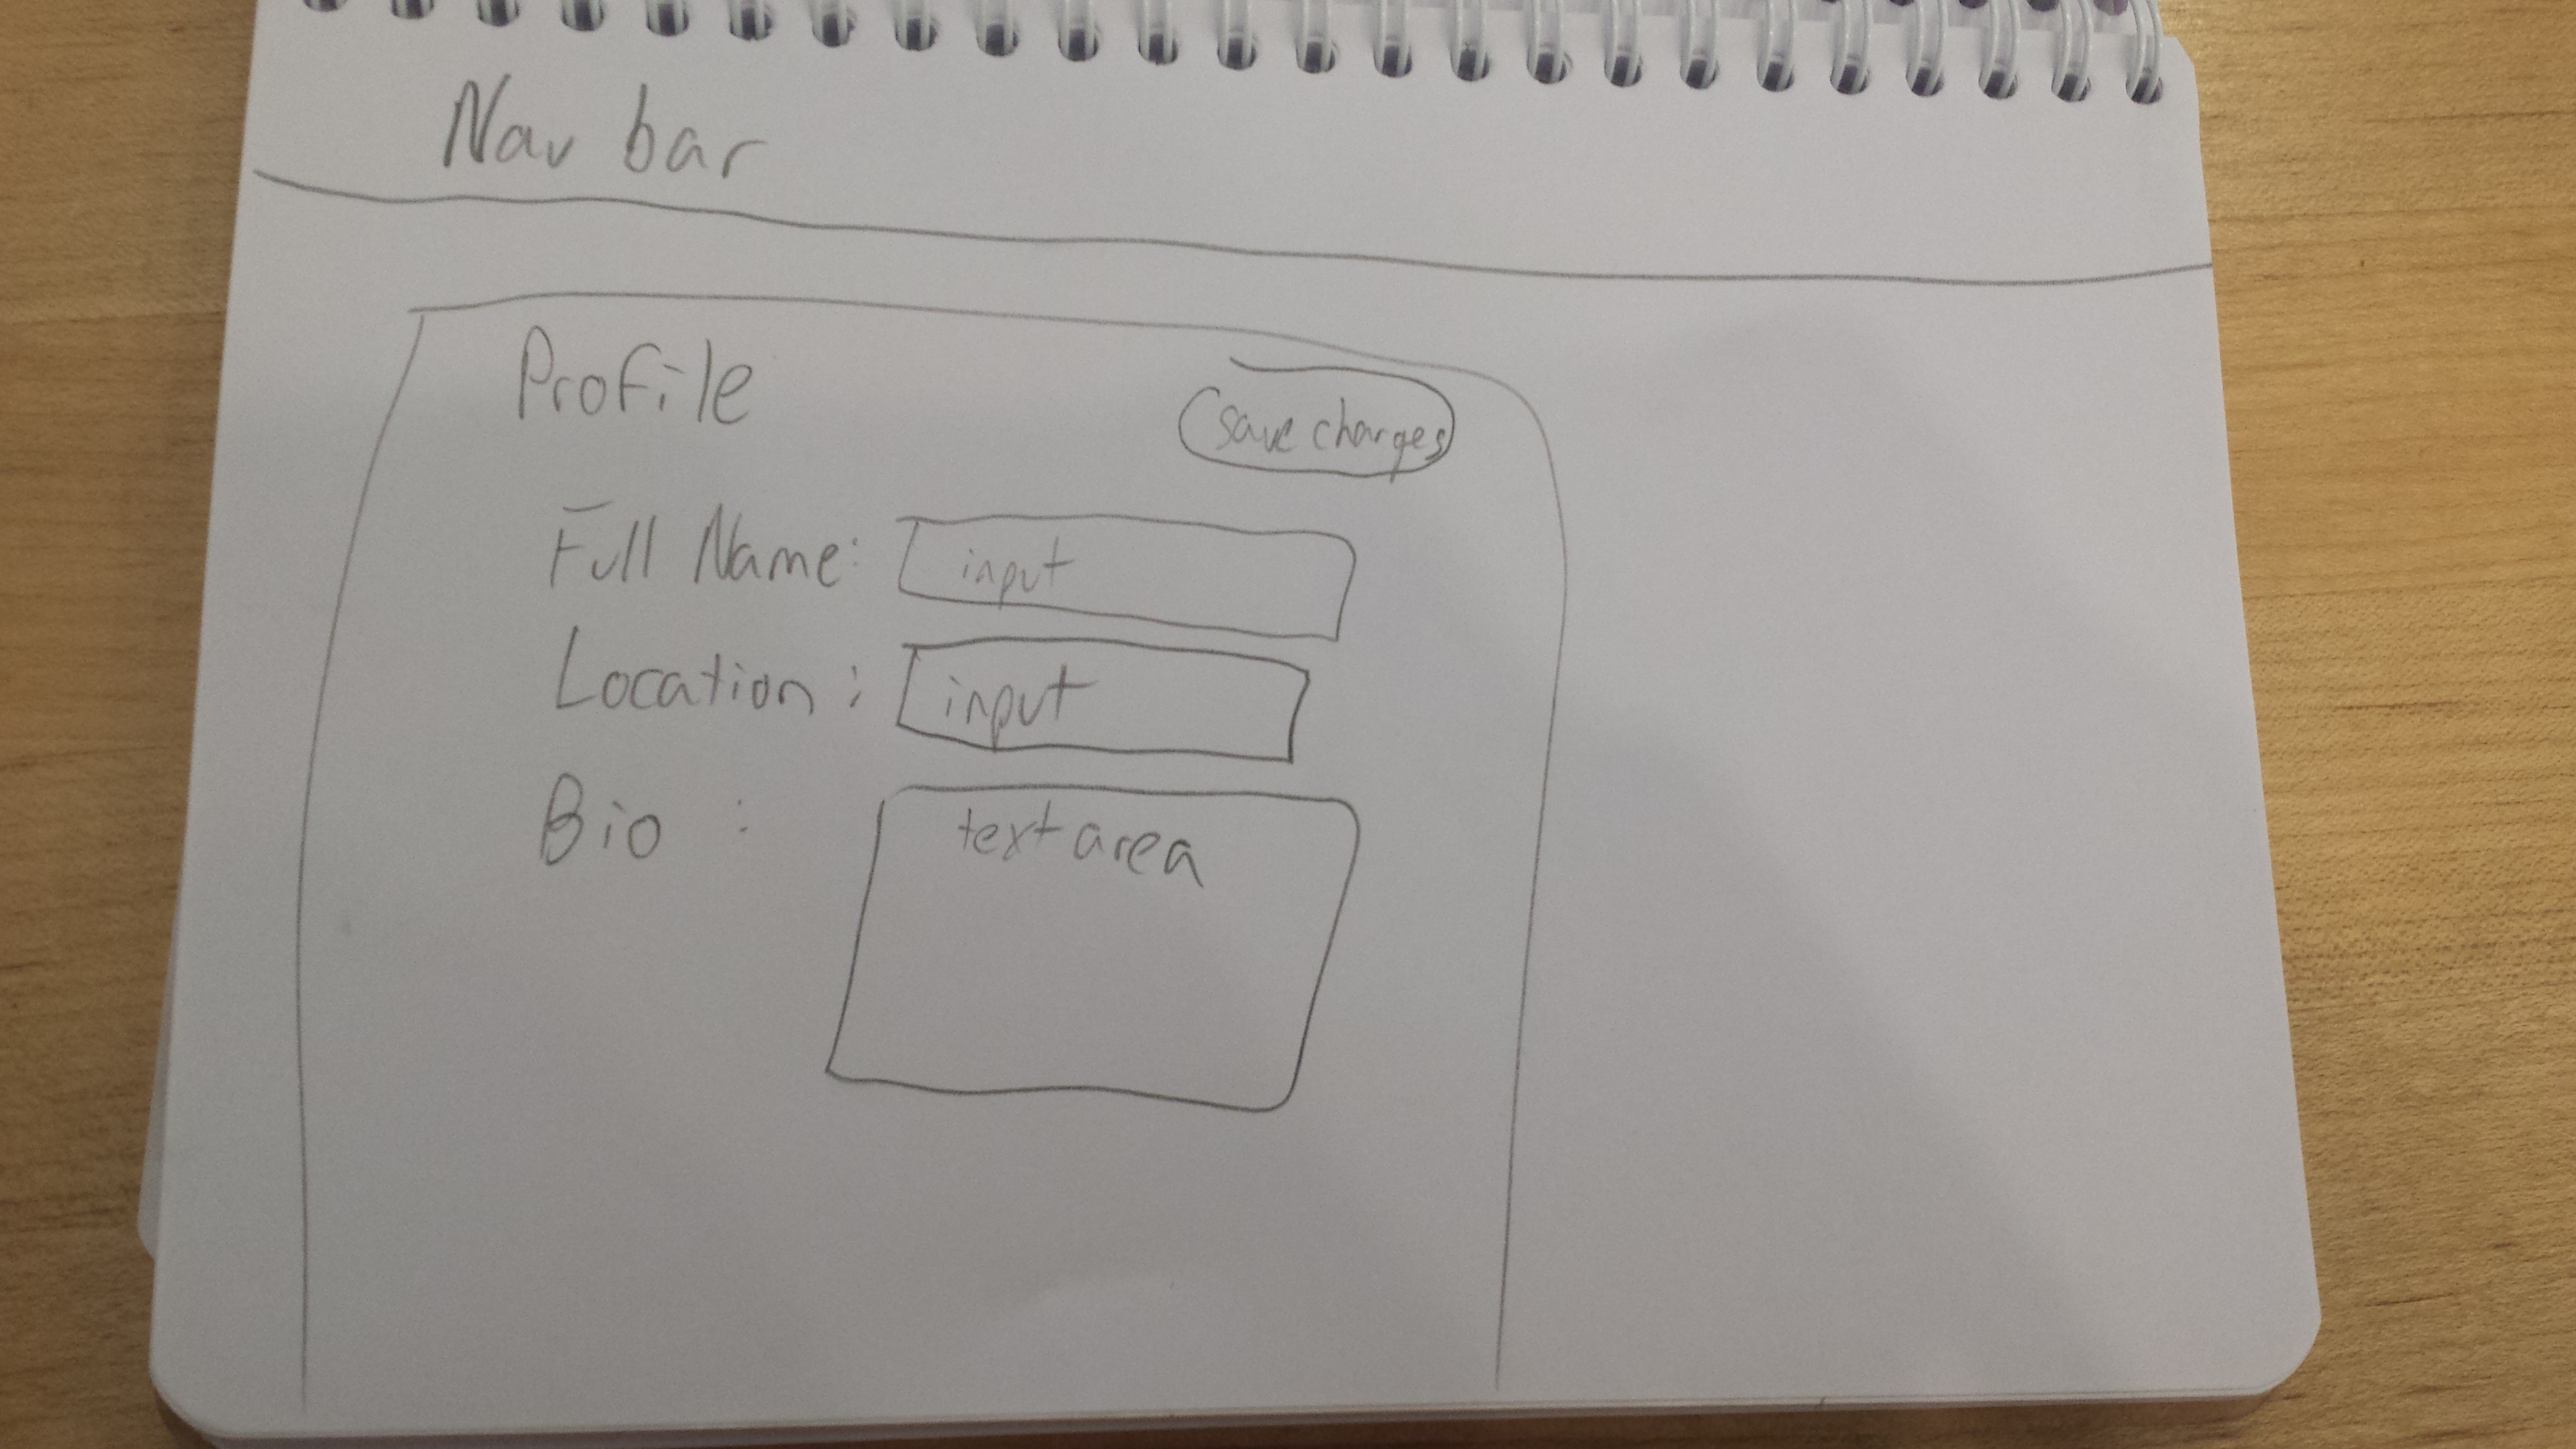 Nav bar
Profile
save changes
Full Name: input
Location: input
Bio : text area